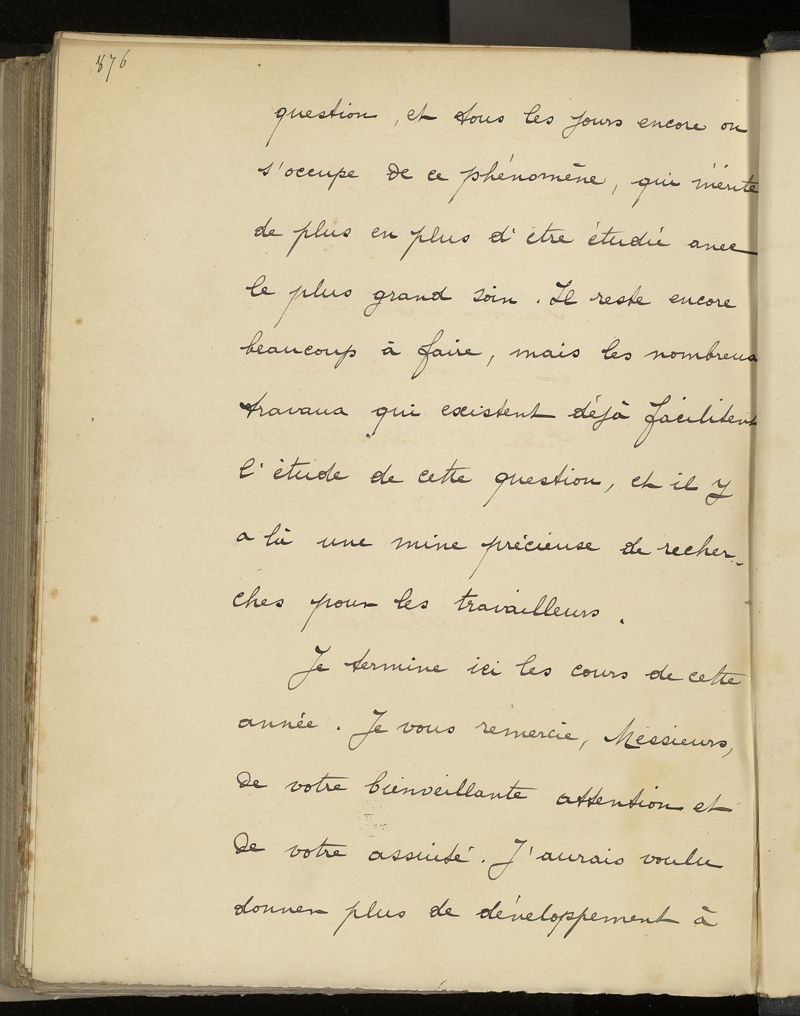 876
question, et tous les jours encore on
s'occupe de ce phénomène, qui mérite
de plus en plus d'être étudié avec
le plus grand soin. Il reste encore
beaucoup à faire, mais les nombreux
travaux qui existent déjà facilitent
l'étude de cette question, et il y
a là une mine précieuse de recher-
ches pour les travailleurs.
Je termine ici les cours de cette
année. Je vous remercie, Messieurs,
de votre bienveillante attention et
de votre assuité. J'aurais voulu
donner plus de développement à